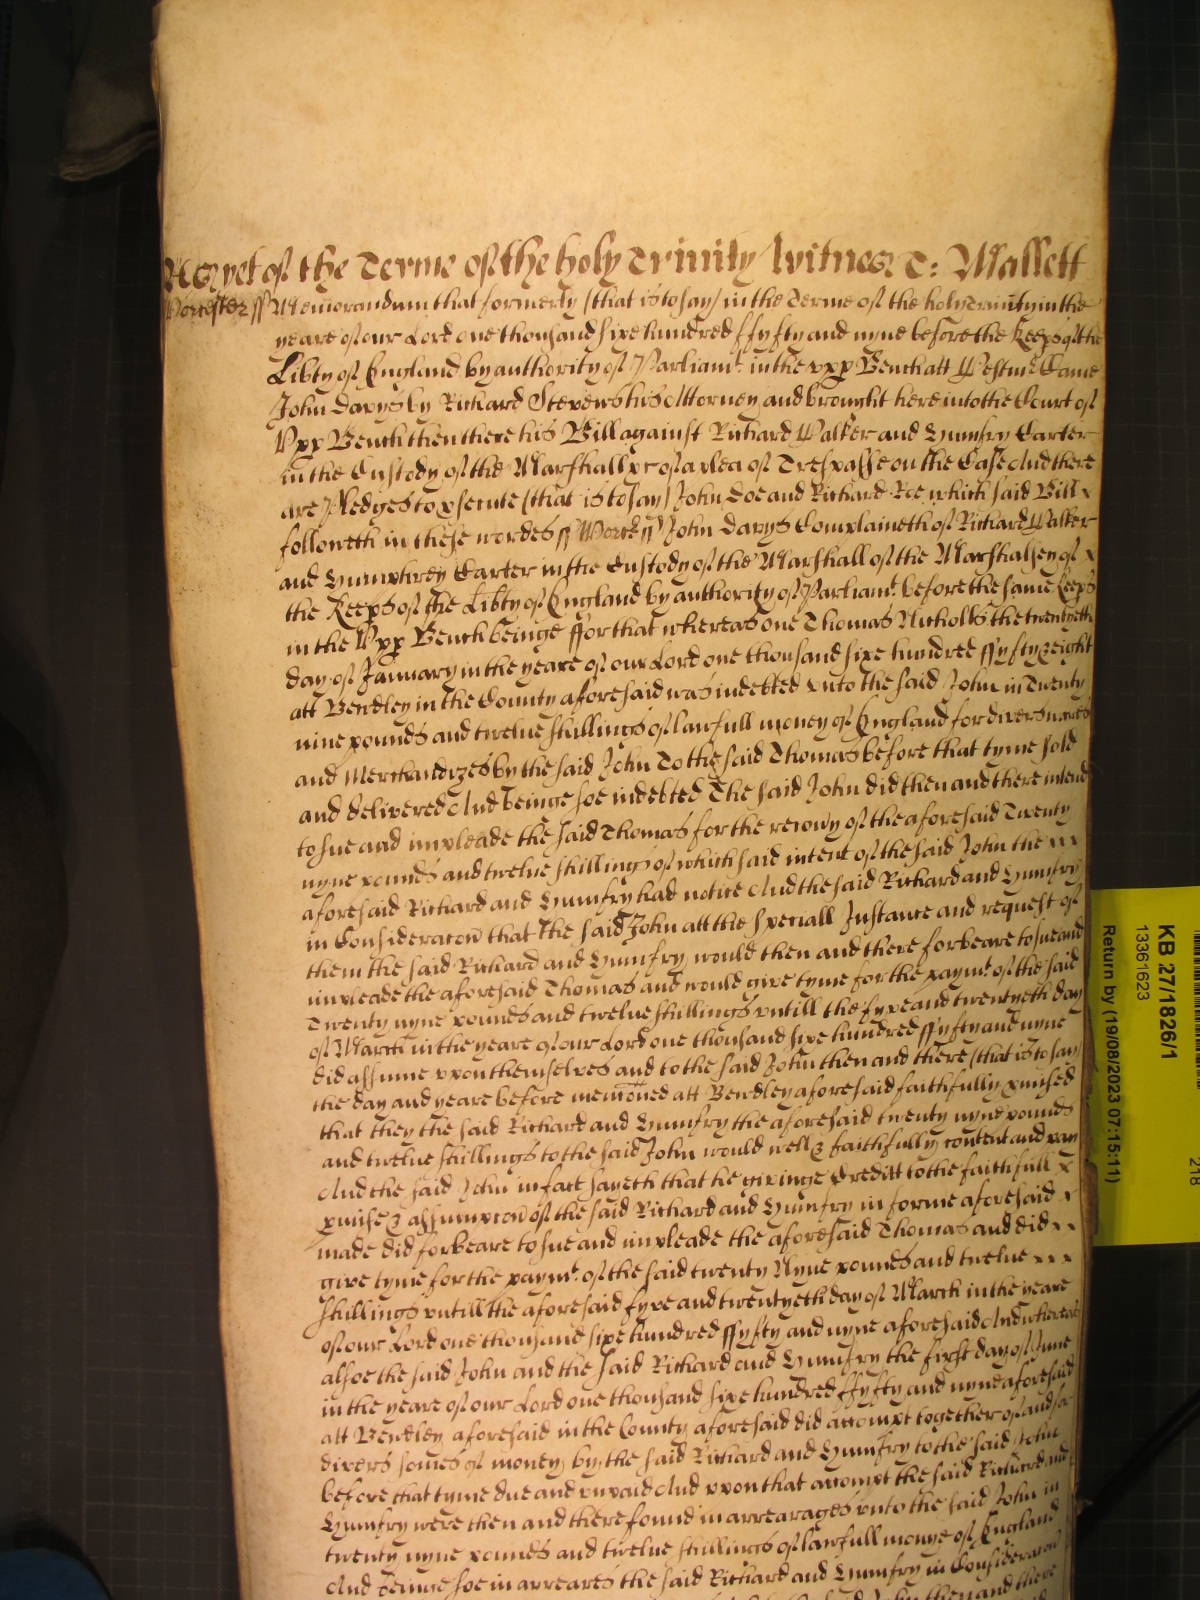 As yet of the Terme of the holy Trinity Witnes T: Mallett
Worcester ss Memorandum that formerly (that is to say) in the Terme of the holy Trinity in the
yeare of our Lord one thousand sixe hundred ffyfty and nyne before the Keeps of the
Libty of England by authority of Parliamt. in the vpp Bench att Westmr. Came
John Davys by Richard Stevens his Attorney and brought here into the Court of
Vpp Bench then there his Bill against Richard Walker and Humfry Carter
in the Custody of the Marshall &c of a plea of Trespasse on the Case And there
are Pledges to psecute (that is to say) John Doe and Richard Roe which said Bill
followeth in these wordes ss Worcr ss John Davys Complaineth of Richard Walker
and Humphrey Carter in the Custody of the Marshall of the Marshalsey of
the Keeps of the Libty of England by authority of Parliamt. before the same Keeps
in the Vpp Bench beinge ffor that whereas one Thomas Nicholls the twentyeth
day of January in the yeare of our Lord one thousand sixe hundred ffyfty & eight
att Bewdley in the County aforesaid was indebted vnto the said John in Twenty
nine pounds and twelve shillings of lawfull money of England for divers wares
and Merchandizes by the said John To the said Thomas before that tyme sold
and delivered And beinge soe indebted The said John did then and there intend
to sue and impleade the said Thomas for the recovy of the aforesaid Twenty
nyne pounds and twelve shillings of which said intent of the said John the
aforesaid Richard and Humfry had notice And the said Richard and Humfry
in Consideracon that the said John att the speciall Instance and request of
them the said Richard and Humfry would then and there forbeare to sue and
impleade the aforesaid Thomas and would give tyme for the paymt. of the said
Twenty nyne pounds and twelve shillings vntill the fyve and twentyeth day
of March in the yeare of our Lord one thousand sixe hundred ffyfty and nyne
did assume vpon themselves and to the said John then and there (that is to say)
the day and yeare before menconed att Bewdley aforesaid faithfully pmised
that they the said Richard and Humfry the aforesaid twenty nyne pounds
and twelve shillings to the said John would well & faithfully content and pay
And the said John in fact sayeth that he givinge Creditt to the faithfull
pmise & assumpcon of the said Richard and Humfry in forme aforesaid
made did forbeare to sue and impleade the aforesaid Thomas and did
give tyme for the paymt. of the said twenty Nyne pounds and twelve
shillings vntill the aforesaid fyve and twentyeth day of March in the yeare
of our Lord one thousand sixe hundred ffyfty and nyne aforesaid And whereas
alsoe the said John and the said Richard and Humfry the first day of June
in the yeare of our Lord one thousand sixe hundred ffyfty and nyne aforesaid
att Bewdley aforesaid in the County aforesaid did accompt together of and for
divers somes of money by the said Richard and Humfry to the said John
before that tyme due and vnpaid And vpon that accompt the said Richard and
Humfry were then and there found in arrearages vnto the said John in
twenty nyne pounds and twelve shillings of lawfull monye of England
And beinge soe in arreares the said Richard and Humfry in Consideracon
John then and there
KB 27/1826/1
13361623
Return by (19/08/2023 07:15:11)
218